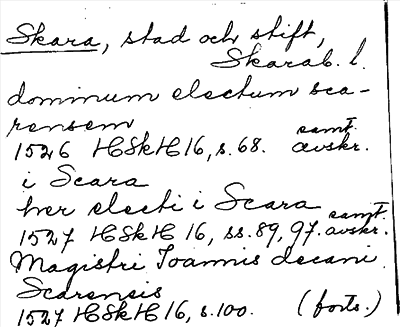 Skara, stad och stift,
Skarab. l.
dominum electum sca-
rensem
1526 HSkH 16, s. 68. samt. avskr.
i Scara
her electi i Scara
1527 HSkH 16, ss. 89, 97. samt. avskr.
Magistri Ioannis decani
Scarensis
1527 HSkH 16, s. 100. (forts.)